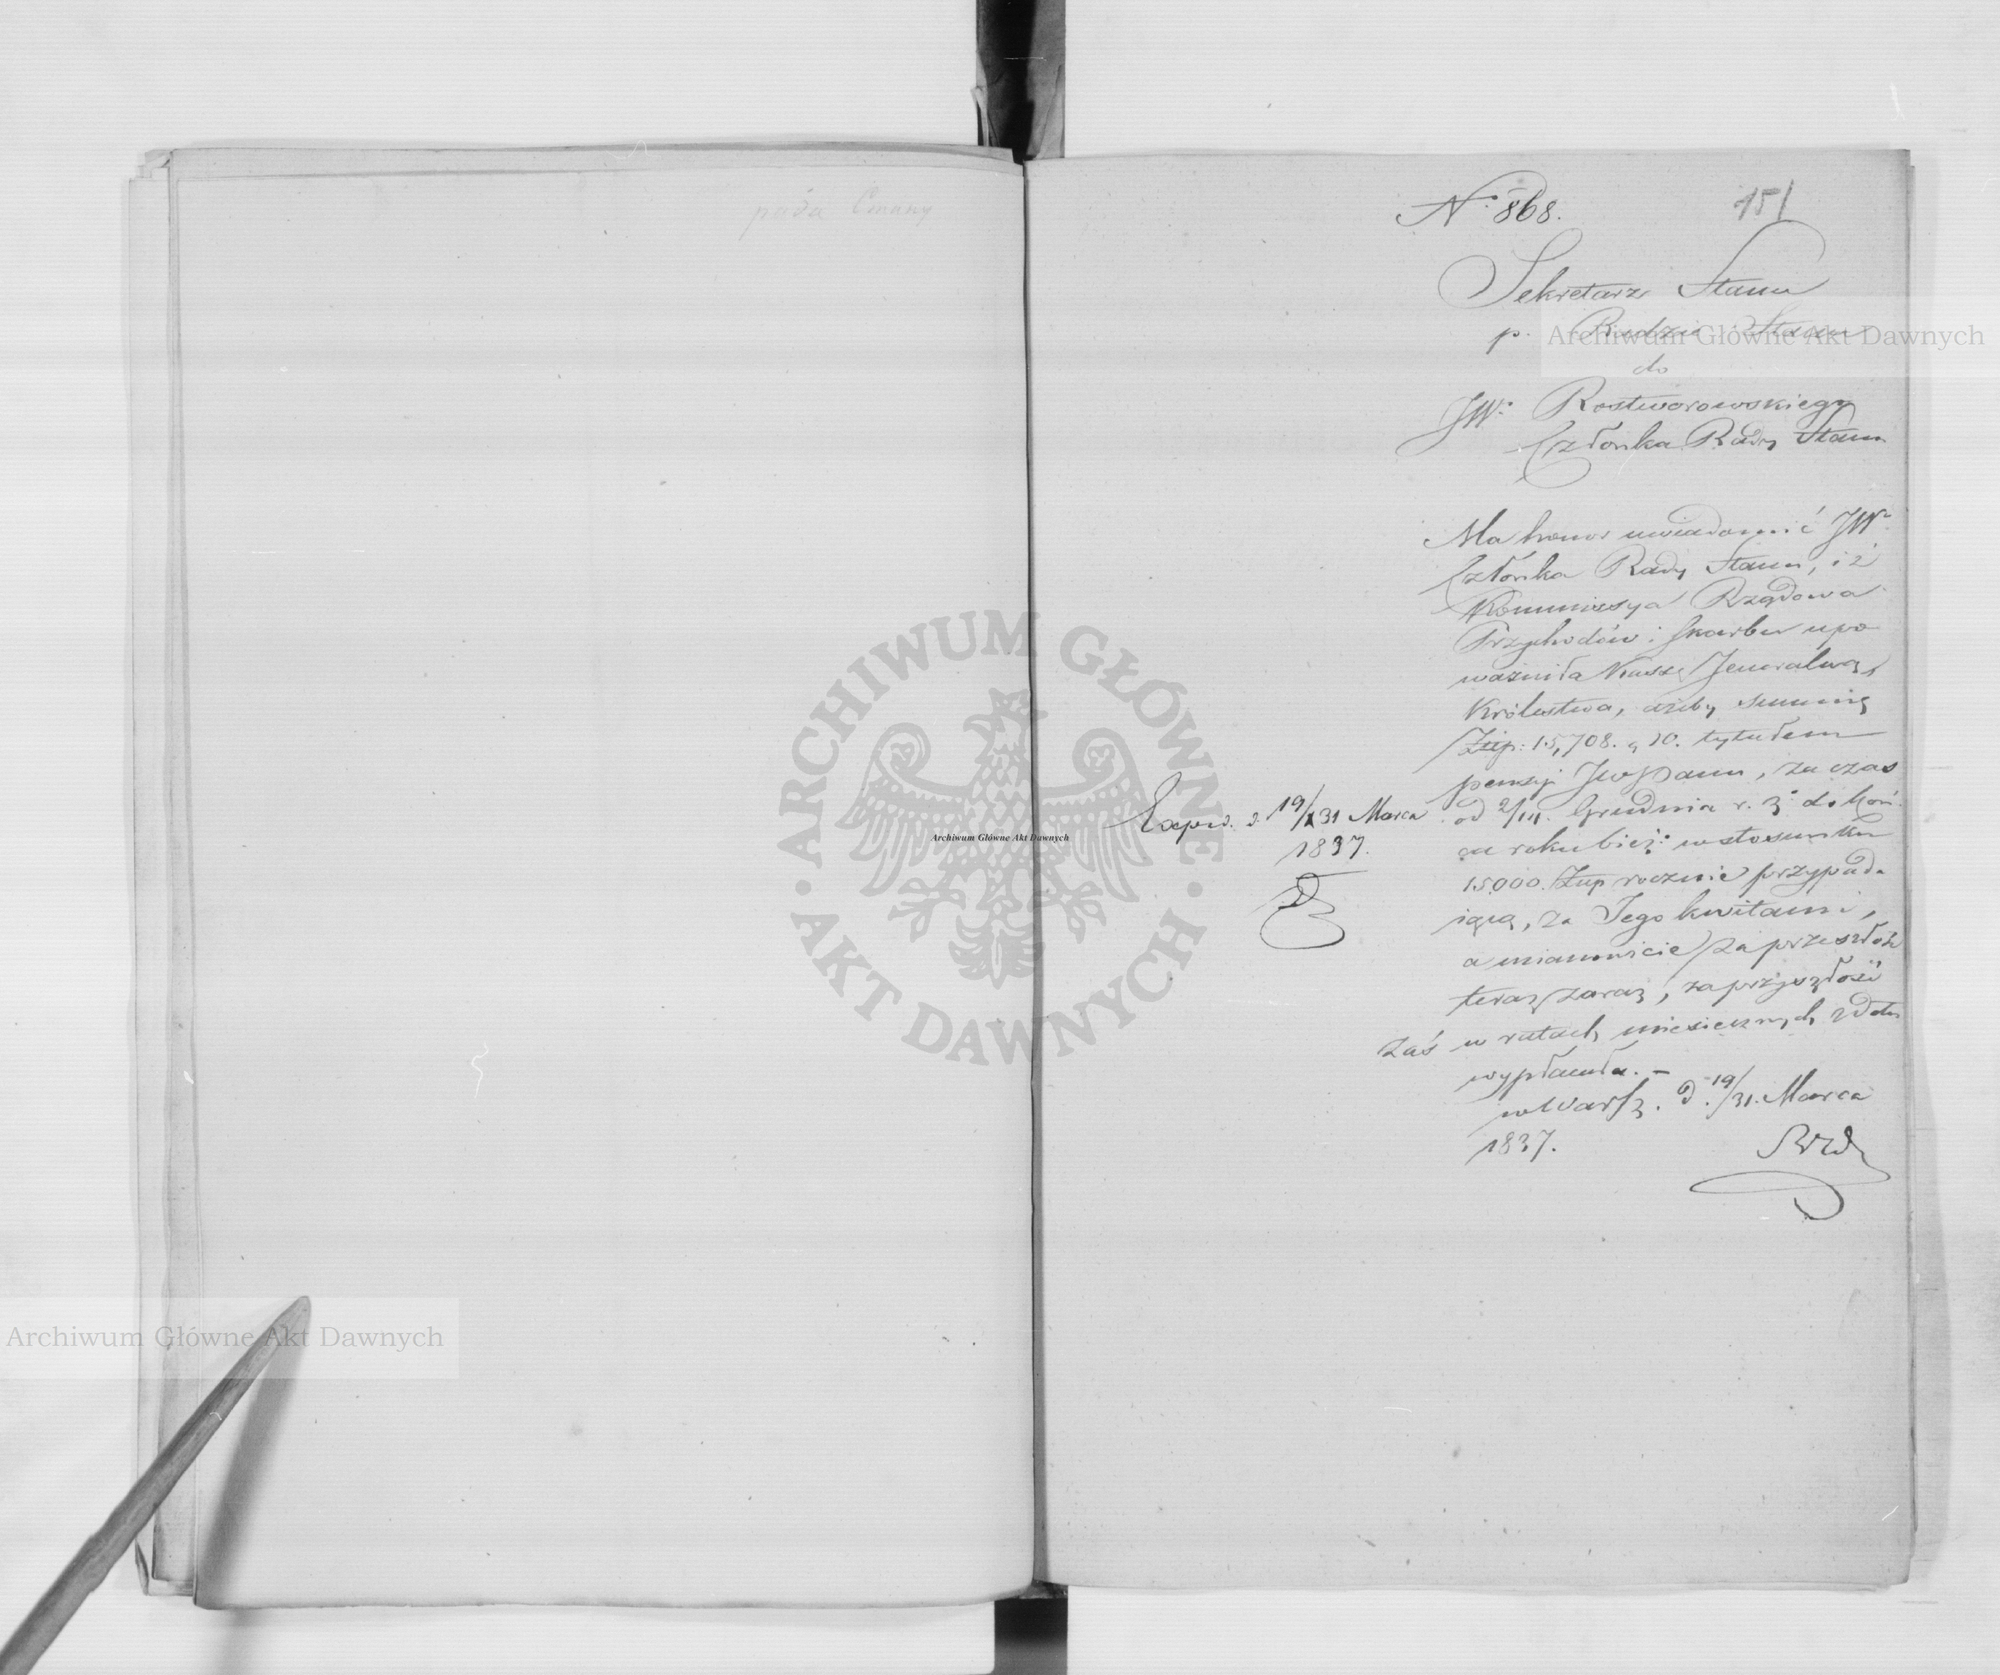 N. 868.
151
Sekretarz Stanu
p. Radzie Stanu
do
JW. Rostworowskiego
Członka Rady Stanu
Ma honor uwiadomić JW.
Członka Rady Stanu, iż
Kommissya Rządowa
Przychodów i Skarbu upo
ważniła Kassę Jeneralną
Królestwa, ażeby summę
Złp: 15,708. g 10. tytułem
pensyi JWo Panu, za czas
od 2/14. Grudnia r. z. do koń
ca roku bież: w stosunku
15.000. Złp rocznie przypada
iącą, za Jego kwitami,
a mianowicie za przeszłość
teraz zaraz, za przyszłość
zaś w ratach miesięcznych z dołu
wypłaciła. –
w Warsz. d. 19/31. Marca
1837.
Expd. d. 19/31 Marca
1837.
Archiwum Główne Akt Dawnych
Archiwum Główne Akt Dawnych
Archiwum Główne Akt Dawnych
ARCHIWUM GŁÓWNE
AKT DAWNYCH